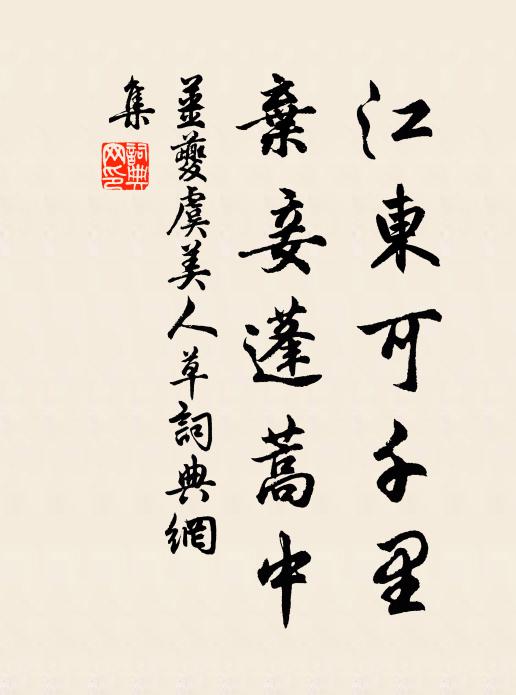 江東可千里
棄妾蓬蒿中
姜夔虞美人草詞典網
集
詞典
网印